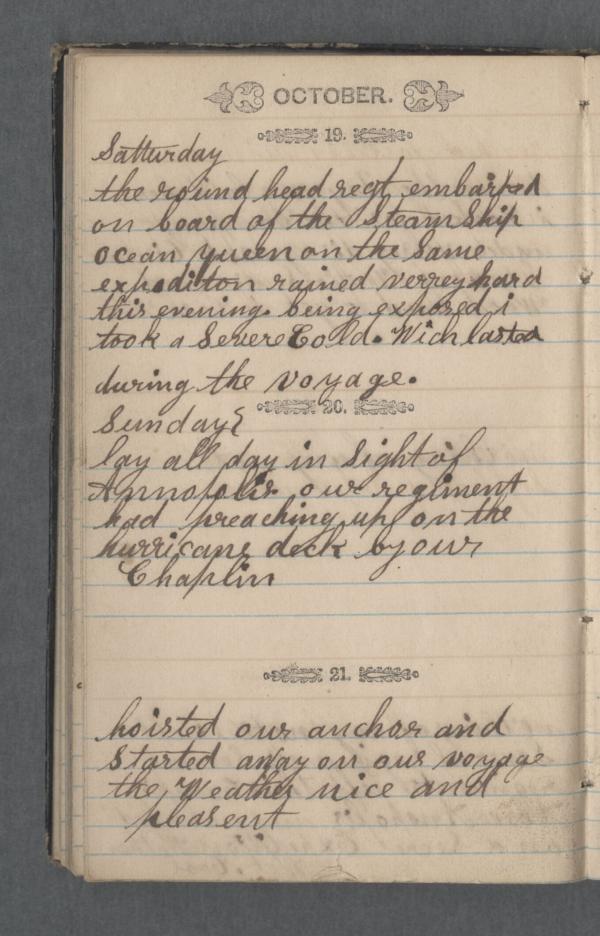 OCTOBER.
19.
Satturday
the round head regt embarked
on board of the Steam Ship
ocean queen on the Same
expediton rained verrey hard
this evening. being exposed i
took a Severe Cold. Wich lasted
during the voyage.
20.
Sunday
lay all day in Sight of
Annopolis. our regiment
had preaching up on the
hurricane deck by our
Chaplin
21.
hoisted our anchor and
Started away on our voyage
the Weather nice and
pleasent